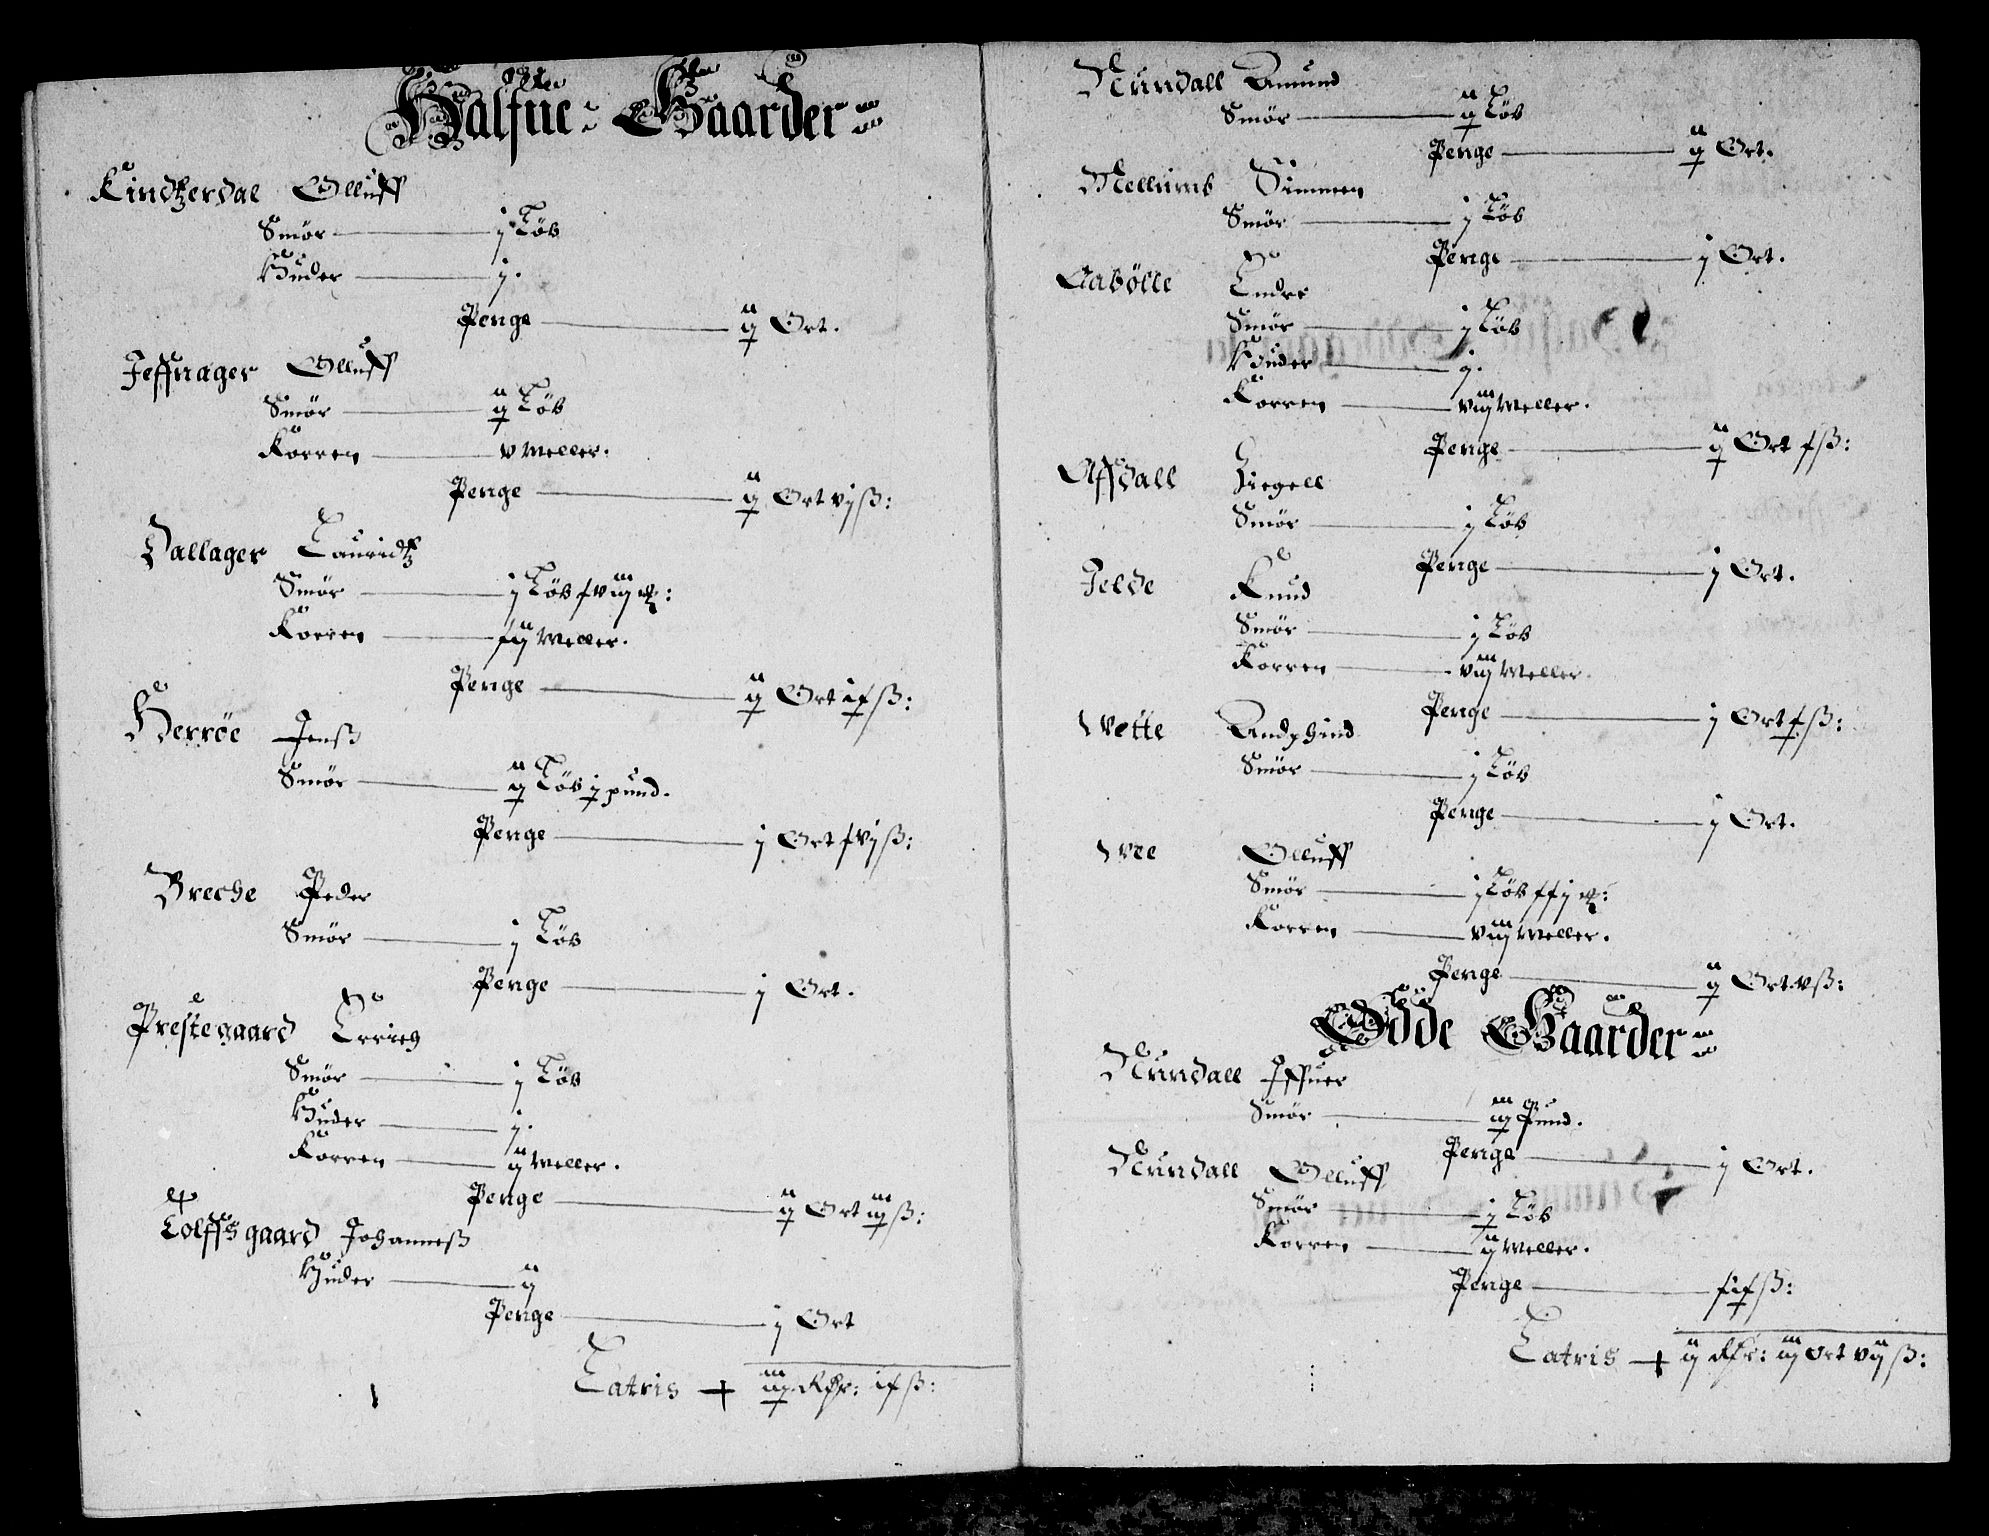 Halfue Gaarder
Kindzerdal Olluff
Smör j Löb
Huder j.
Penge ij Ort.
Jeffnager Olluff
Smör ij Löb
Korren v meller.
Penge ij Ort vj ß:
Dallager Lauridtz
Smör j Löb
Korren meller.
Penge ij Ort ß:
Herröe Jenß
Smör ij Löb j pund.
Penge j Ort ß:
Breche Peder
Smör j Löb
Penge j Ort.
Prestegaard Errich
Smör j Löb
Huder j.
Korren ij meller.
Penge ij Ort iij ß:
Lolffsgaard Johanneß
Huder ij
Penge j Ort
Latris iij ß:
Nundall Amund
Smör ij Löb
Penge ij Ort.
Mellumb Simmen
Smör j Löb
Penge j Ort.
Aabölle Endre
Smör j Löb
Huder j.
Korren viij meller.
Penge ij Ort ß:
Affdall
Smör j Löb
Penge j Ort.
Jelde Knud
Smör j Löb
Korren viij meller.
Penge j Ort ß:
Wette
Smör j Löb
Penge j Ort.
Wee Olluff
Smör j Löb
Korren viij meller.
Penge ij Ort v ß:
Öde Gaarder
Nundall Iffuer
Smör iij Pund.
Penge j Ort.
Nundall Olluff
Smör j Löb
Korren meller.
Penge ß:
Latris ij iij ort vij ß: